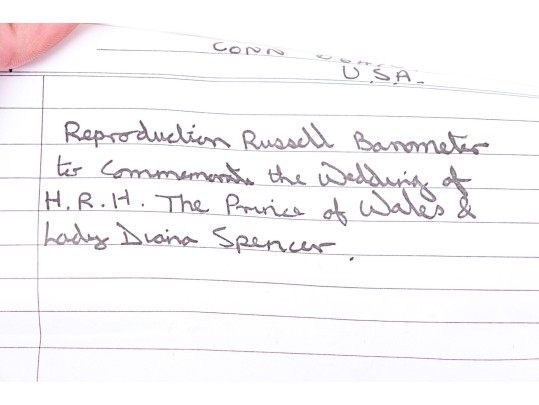 CONN
U.S.A.
Reproduction Russell Barometer
to Commemorate the Wedding of
H.R.H. The Prince of Wales &
Lady Diana Spencer.